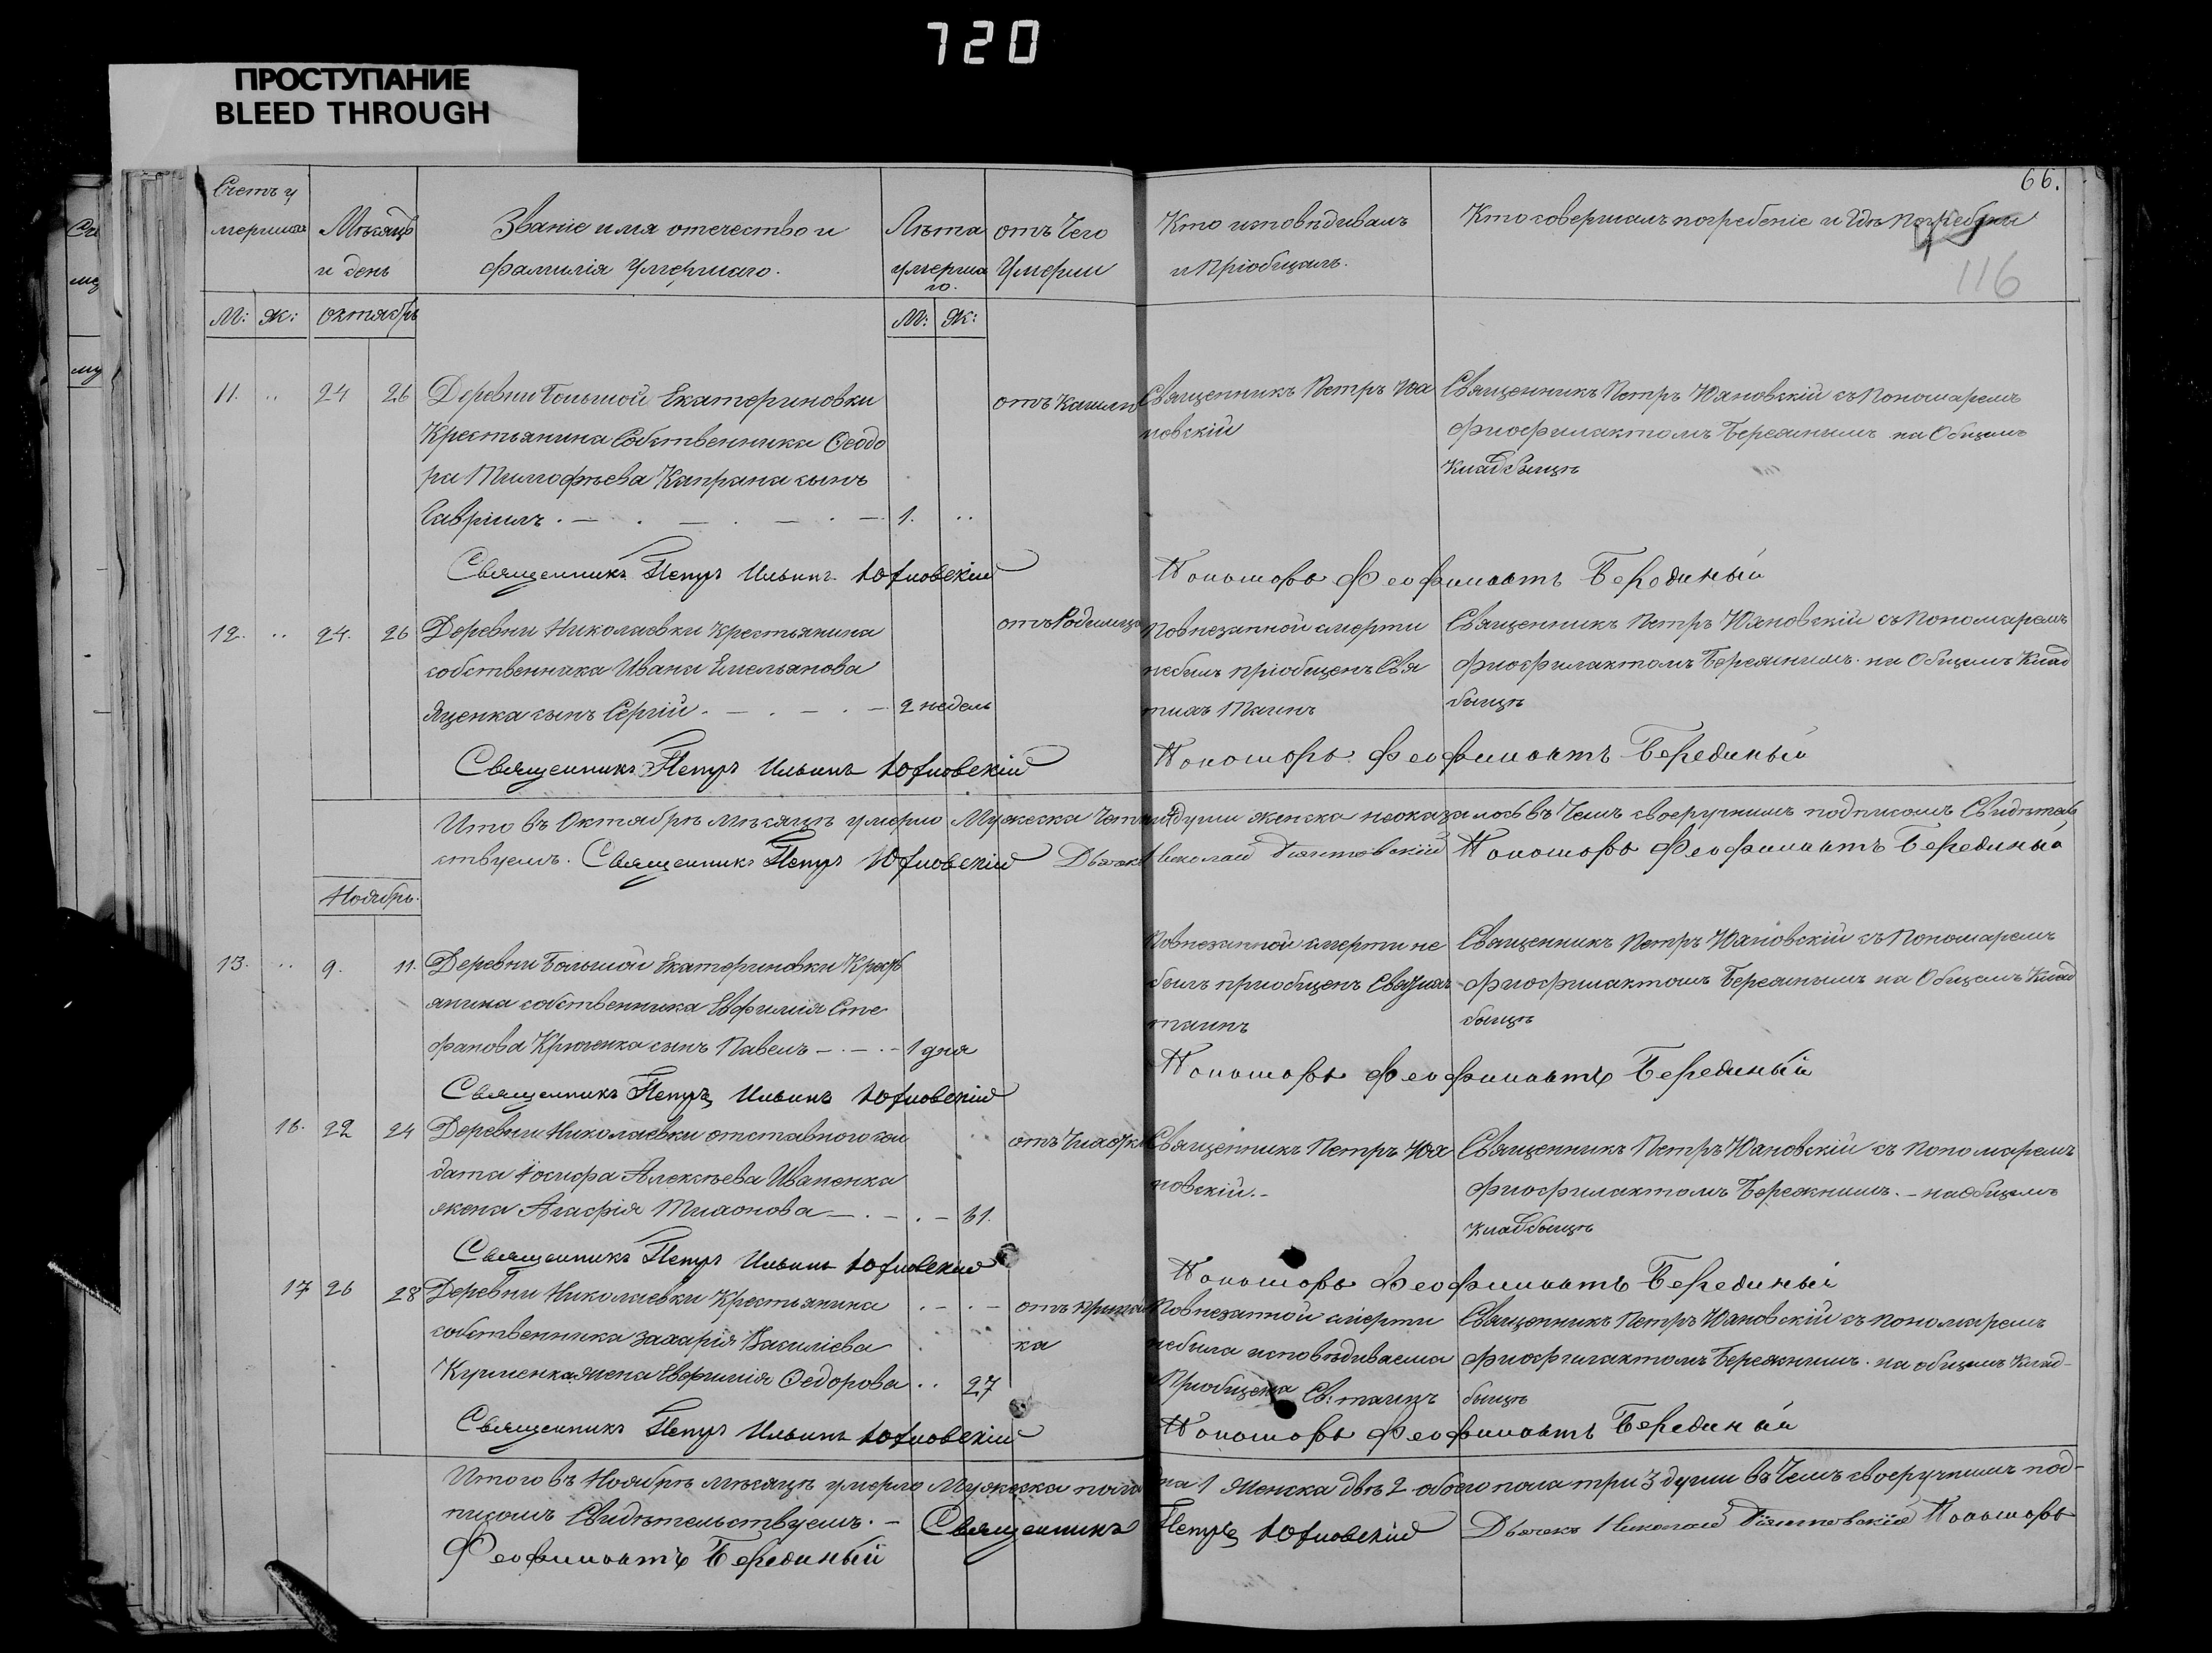 720
ПРОСТУПАНИЕ
BLEED THROUGH
66.
116
Счетъ у
мершихъ
Мѣсяцъ
и день
Званіе имя отечество и
фамилія Умершаго.
Лѣта
умерша
го.
отъ Чего
Умерли
Кто исповѣдивалъ
и Пріобщалъ.
Кто совершалъ погребеніе и Гдѣ Погребены
М: Ж: Октябрь
М: Ж:
11. .. 24 26 Деревни Большой Екатериновки
Крестьянина Собственника Ѳеодо
ра Тимофѣева Капрана сынъ
Гавріилъ . — . — . — . — 1. ..
отъ Кашля
Священникъ Петръ Юх
новскій
Священникъ Петръ Юхновскій съ Пономаремъ
Фиофилактомъ Бережнымъ на Общемъ
Кладбищѣ
Священникъ Петръ Ильинъ Юхновскій
Пономарь Феофилактъ Бережный
12. .. 24. 26 Деревни Николаевки Крестьянина
собственника Ивана Емельянова
Яценка сынъ Сергій . — . — . — 2 недель
отъ Родимца
Повнезапной смерти
небылъ пріобщенъ Свя
тихъ Таинъ
Священникъ Петръ Юхновскій съ Пономаремъ
Фиофилактомъ Бережнимъ. на Общемъ Клад
бищѣ
Священникъ Петръ Ильинъ Юхновскій
Пономарь Феофилактъ Бережный
Ито въ Октябрѣ мѣсяцѣ умерло Мужеска души женска неоказалось въ Чемъ своеручнимъ подписомъ Свидѣтель
ствуемъ. Священникъ Петръ Юхновскій Дьячекъ Николай Пономарь Феофилактъ Бережный
Ноябрь.
13. .. 9. 11. Деревни Большой Екатериновки Кресть
янина собственника Евфимія Сте
фанова Крюченка сынъ Павелъ — . — . — 1 дня
Повнезапной смерти не
былъ приобщенъ Святихъ
таинъ
Священникъ Петръ Юхновскій съ Пономаремъ
Фиофилактомъ Бережнымъ на Общемъ Клад
бищѣ
Священникъ Петръ Ильинъ Юхновскій
Пономарь Феофилактъ Бережный
16. 22 24 Деревни Николаевки отставного сол
дата Іосифа Алексѣева Иваненка
жена Агафія Тихонова — . — . — 61.
отъ Чихотки
Священникъ Петръ Юх
новскій. —
Священникъ Петръ Юхновскій съ Пономаремъ
Фиофилактомъ Бережнимъ. — наобщемъ
Кладбищѣ
Священникъ Петръ Ильинъ Юхновскій
Пономарь Феофилактъ Бережный
17 26 28 Деревни Николаевки Крестьянина
собственника Захарія Василіева
жена Евфимія Ѳедорова .. 27
ка
Повнезапной смерти
небила исповѣдиваема
Приобщена Св: таинъ
Священникъ Петръ Юхновскій съ пономаремъ
Фиофилактомъ Бережнимъ. на общемъ Клад-
бищѣ
Священникъ Петръ Ильинъ Юхновскій
Пономарь Феофилактъ Бережный
Итого въ Ноябрѣ мѣсяцѣ умерло Мужеска пола 1 Женска двѣ 2 обоего пола три 3 души въ Чемъ своеручнимъ под-
писомъ Свидѣтельствуемъ. — Священникъ Петръ Юхновскій Дьячекъ Николай Пономарь
Феофилактъ Бережный